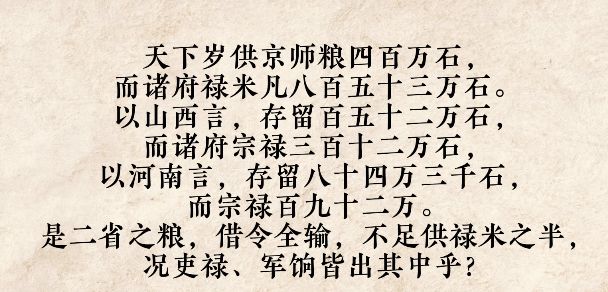 天下岁供京师粮四百万石，
而诸府禄米凡八百五十三万石。
以山西言，存留百五十二万石，
而诸府宗禄三百十二万石，
以河南言，存留八十四万三千石，
而宗禄百九十二万。
是二省之粮，借令全输，不足供禄米之半，
况吏禄、军饷皆出其中乎？